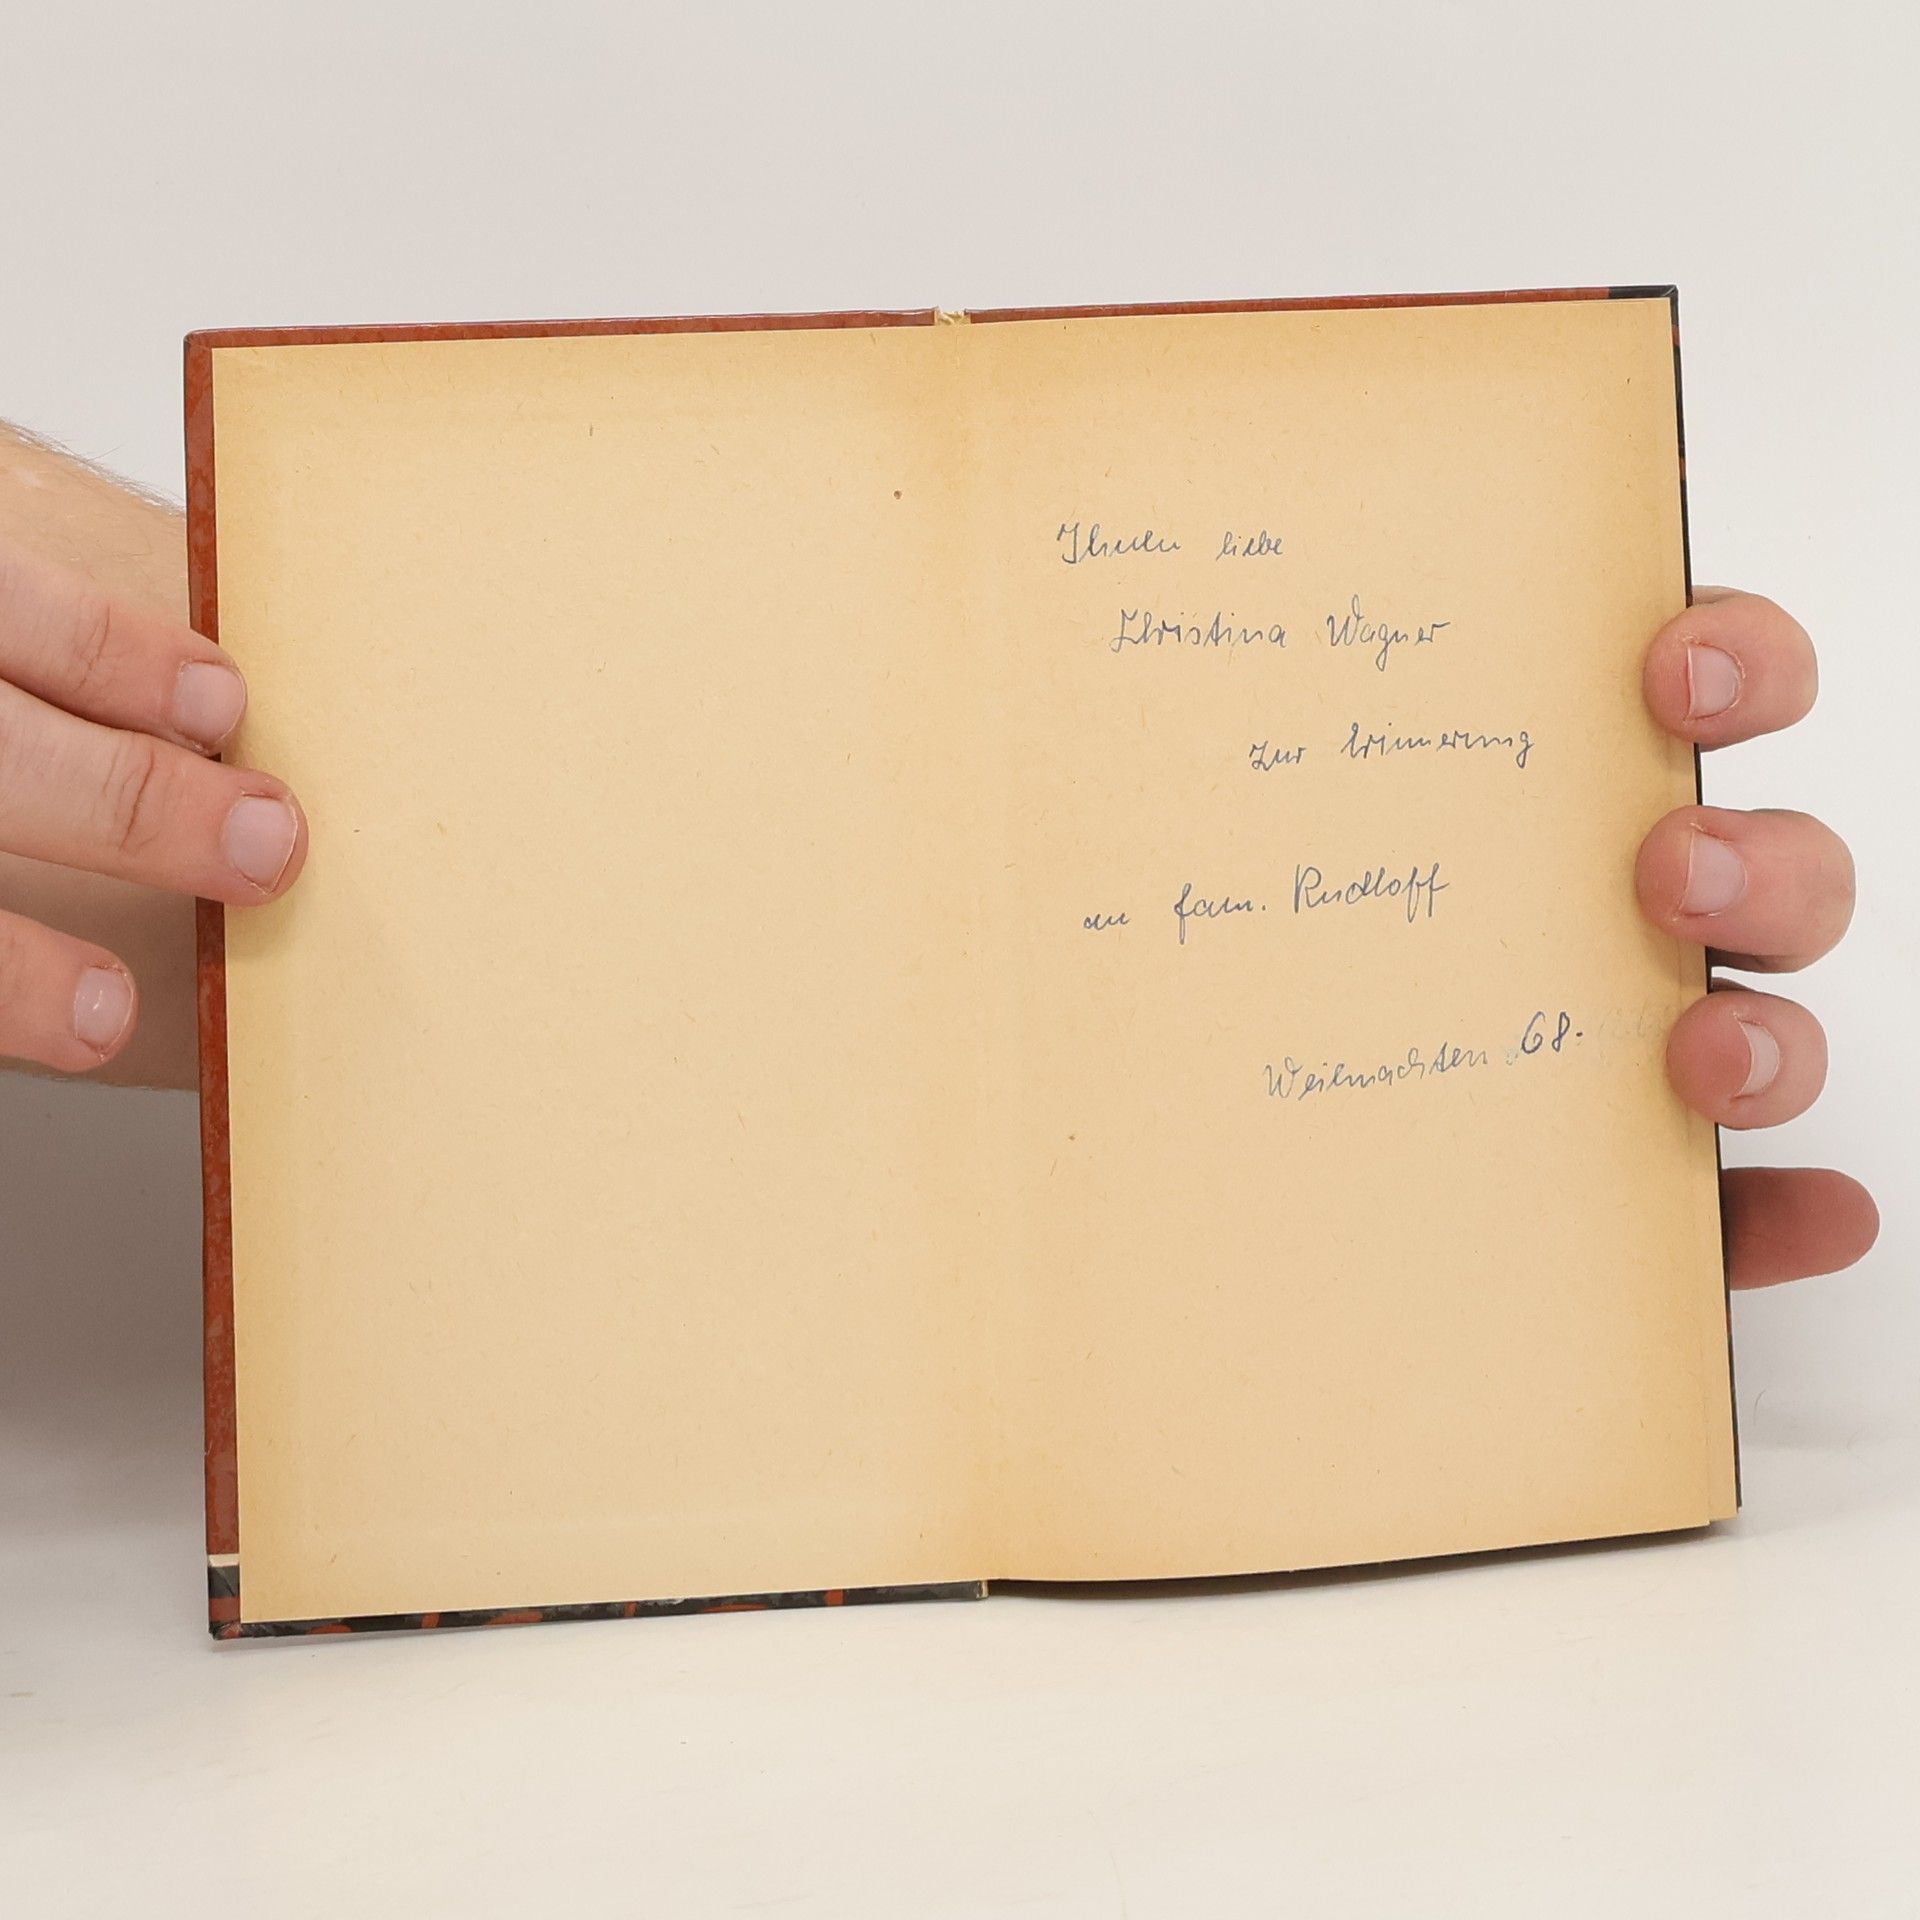 Ihnen liebe
Christina Wagner
zur Erinnerung
an Fam. Rudloff
Weihnachten 68.